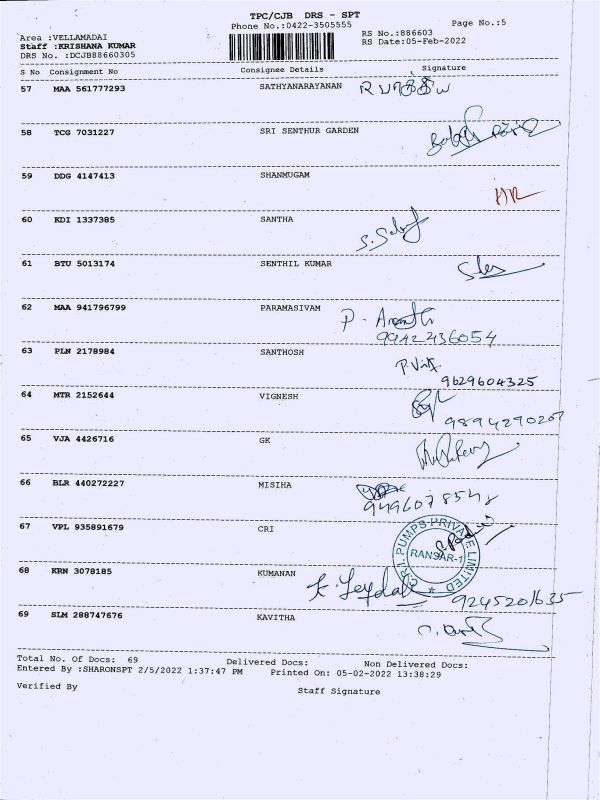 TPC/CJB DRS - SPT
Phone No.:0422-3505555
Page No.:5
Area :VELLAMADAI
RS No.:886603
Staff :KRISHANA KUMAR
RS Date:05-Feb-2022
DRS No. :DCJB88660305
S No Consignment No Consignee Details Signature
57 MAA 561777293 SATHYANARAYANAN
58 TCG 7031227 SRI SENTHUR GARDEN
59 DDG 4147413 SHANMUGAM
60 KDI 1337385 SANTHA
61 BTU 5013174 SENTHIL KUMAR
62 MAA 941796799 PARAMASIVAM
9942436054
63 PLN 2178984 SANTHOSH
9629604325
64 MTR 2152644 VIGNESH
9894290207
65 VJA 4426716 GK
66 BLR 440272227 MISIHA
9496078548
67 VPL 935891679 CRI
C.R.I. PUMPS PRIVATE LIMITED
RANSAR-1
68 KRN 3078185 KUMANAN
9245201635
69 SLM 288747676 KAVITHA
Total No. Of Docs: 69 Delivered Docs: Non Delivered Docs:
Entered By :SHARONSPT 2/5/2022 1:37:47 PM Printed On: 05-02-2022 13:38:29
Verified By Staff Signature